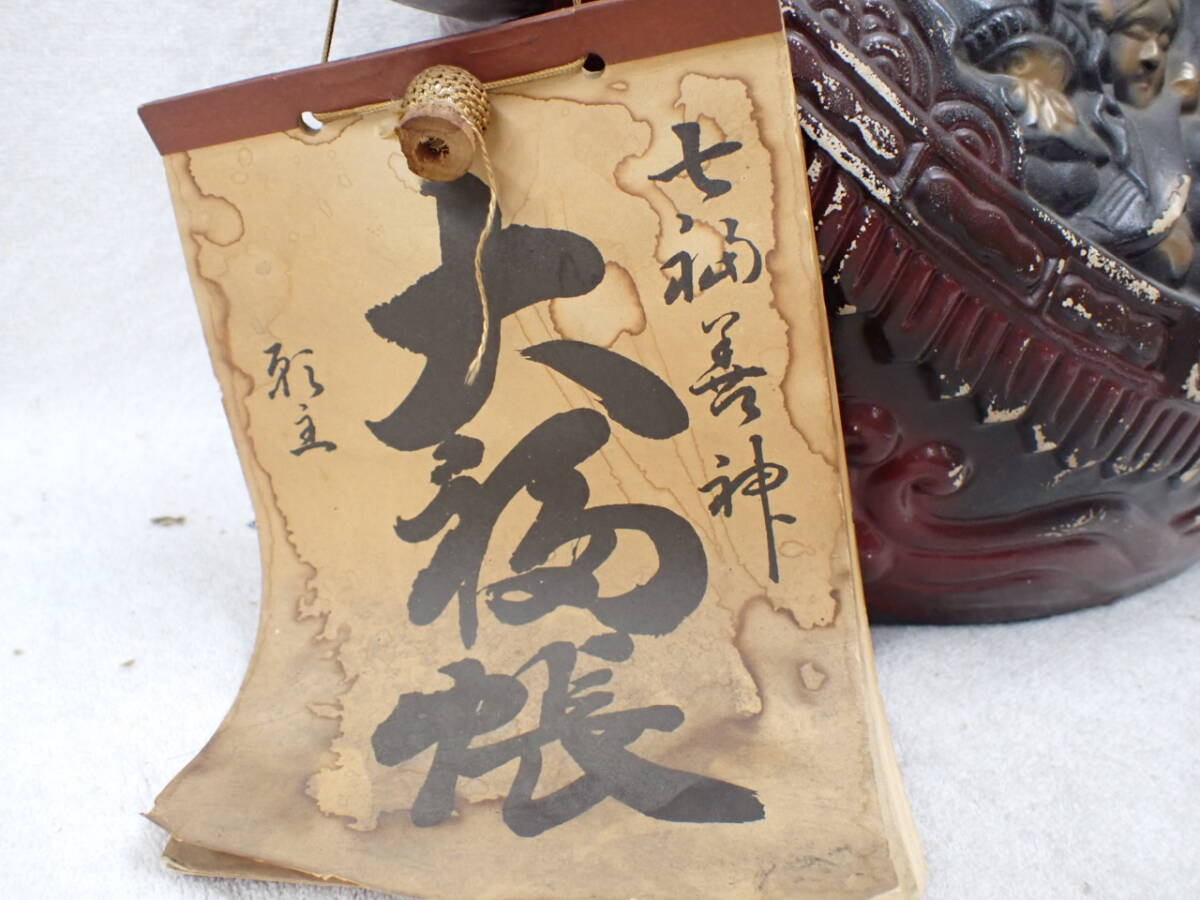 七福善神
大福帳
願主